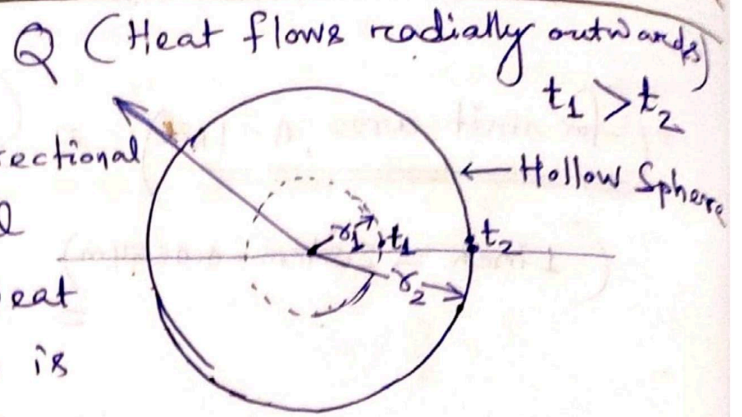 Q (Heat flows radially outwards)
t₁ > t₂
ectional
← Hollow Sphere
r₁
t₁
t₂
r₂
eat
is